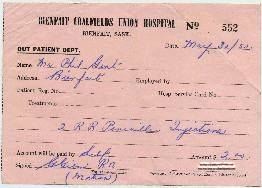 BIENFAIT COALFIELDS UNION HOSPITAL
BIENFAIT, SASK.
Nº 552
OUT PATIENT DEPT.
Date May 30/50
Name Mr Phil Gent
Address Bienfait Employed by
Patient Reg. No. Hosp. Service Card No.
Treatments
2 R R Penicillin Injections
Account will be paid by Self Amount $ 2.00
Signed RN
(Matron)